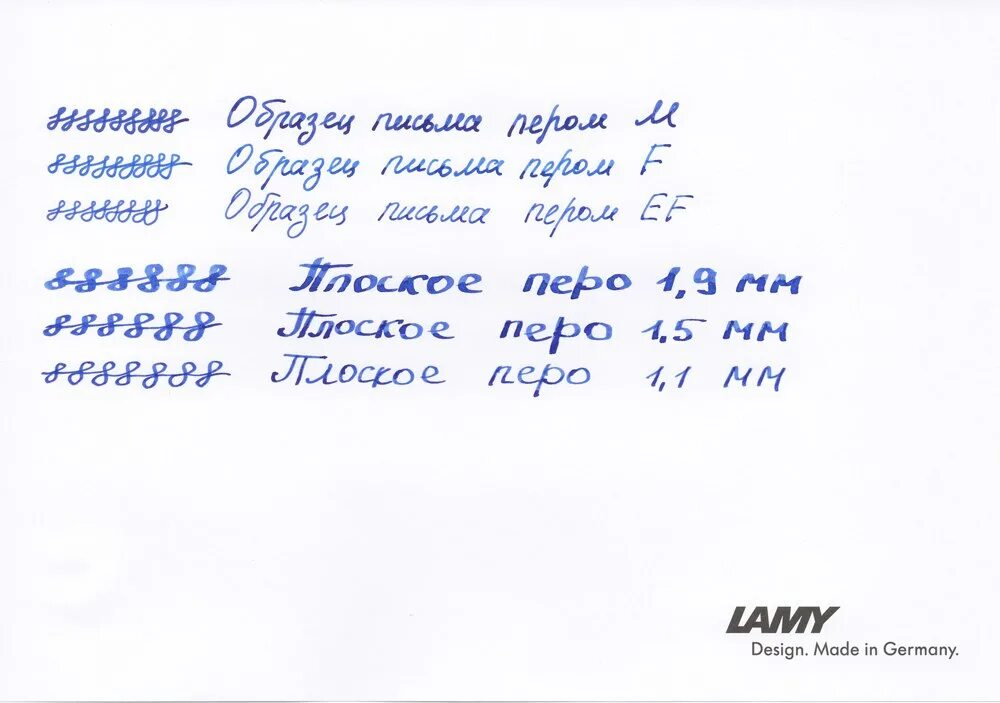 Образец письма пером M
Образец письма пером F
Образец письма пером EF
Плоское перо 1,9 мм
Плоское перо 1.5 мм
Плоское перо 1,1 мм
LAMY
Design. Made in Germany.